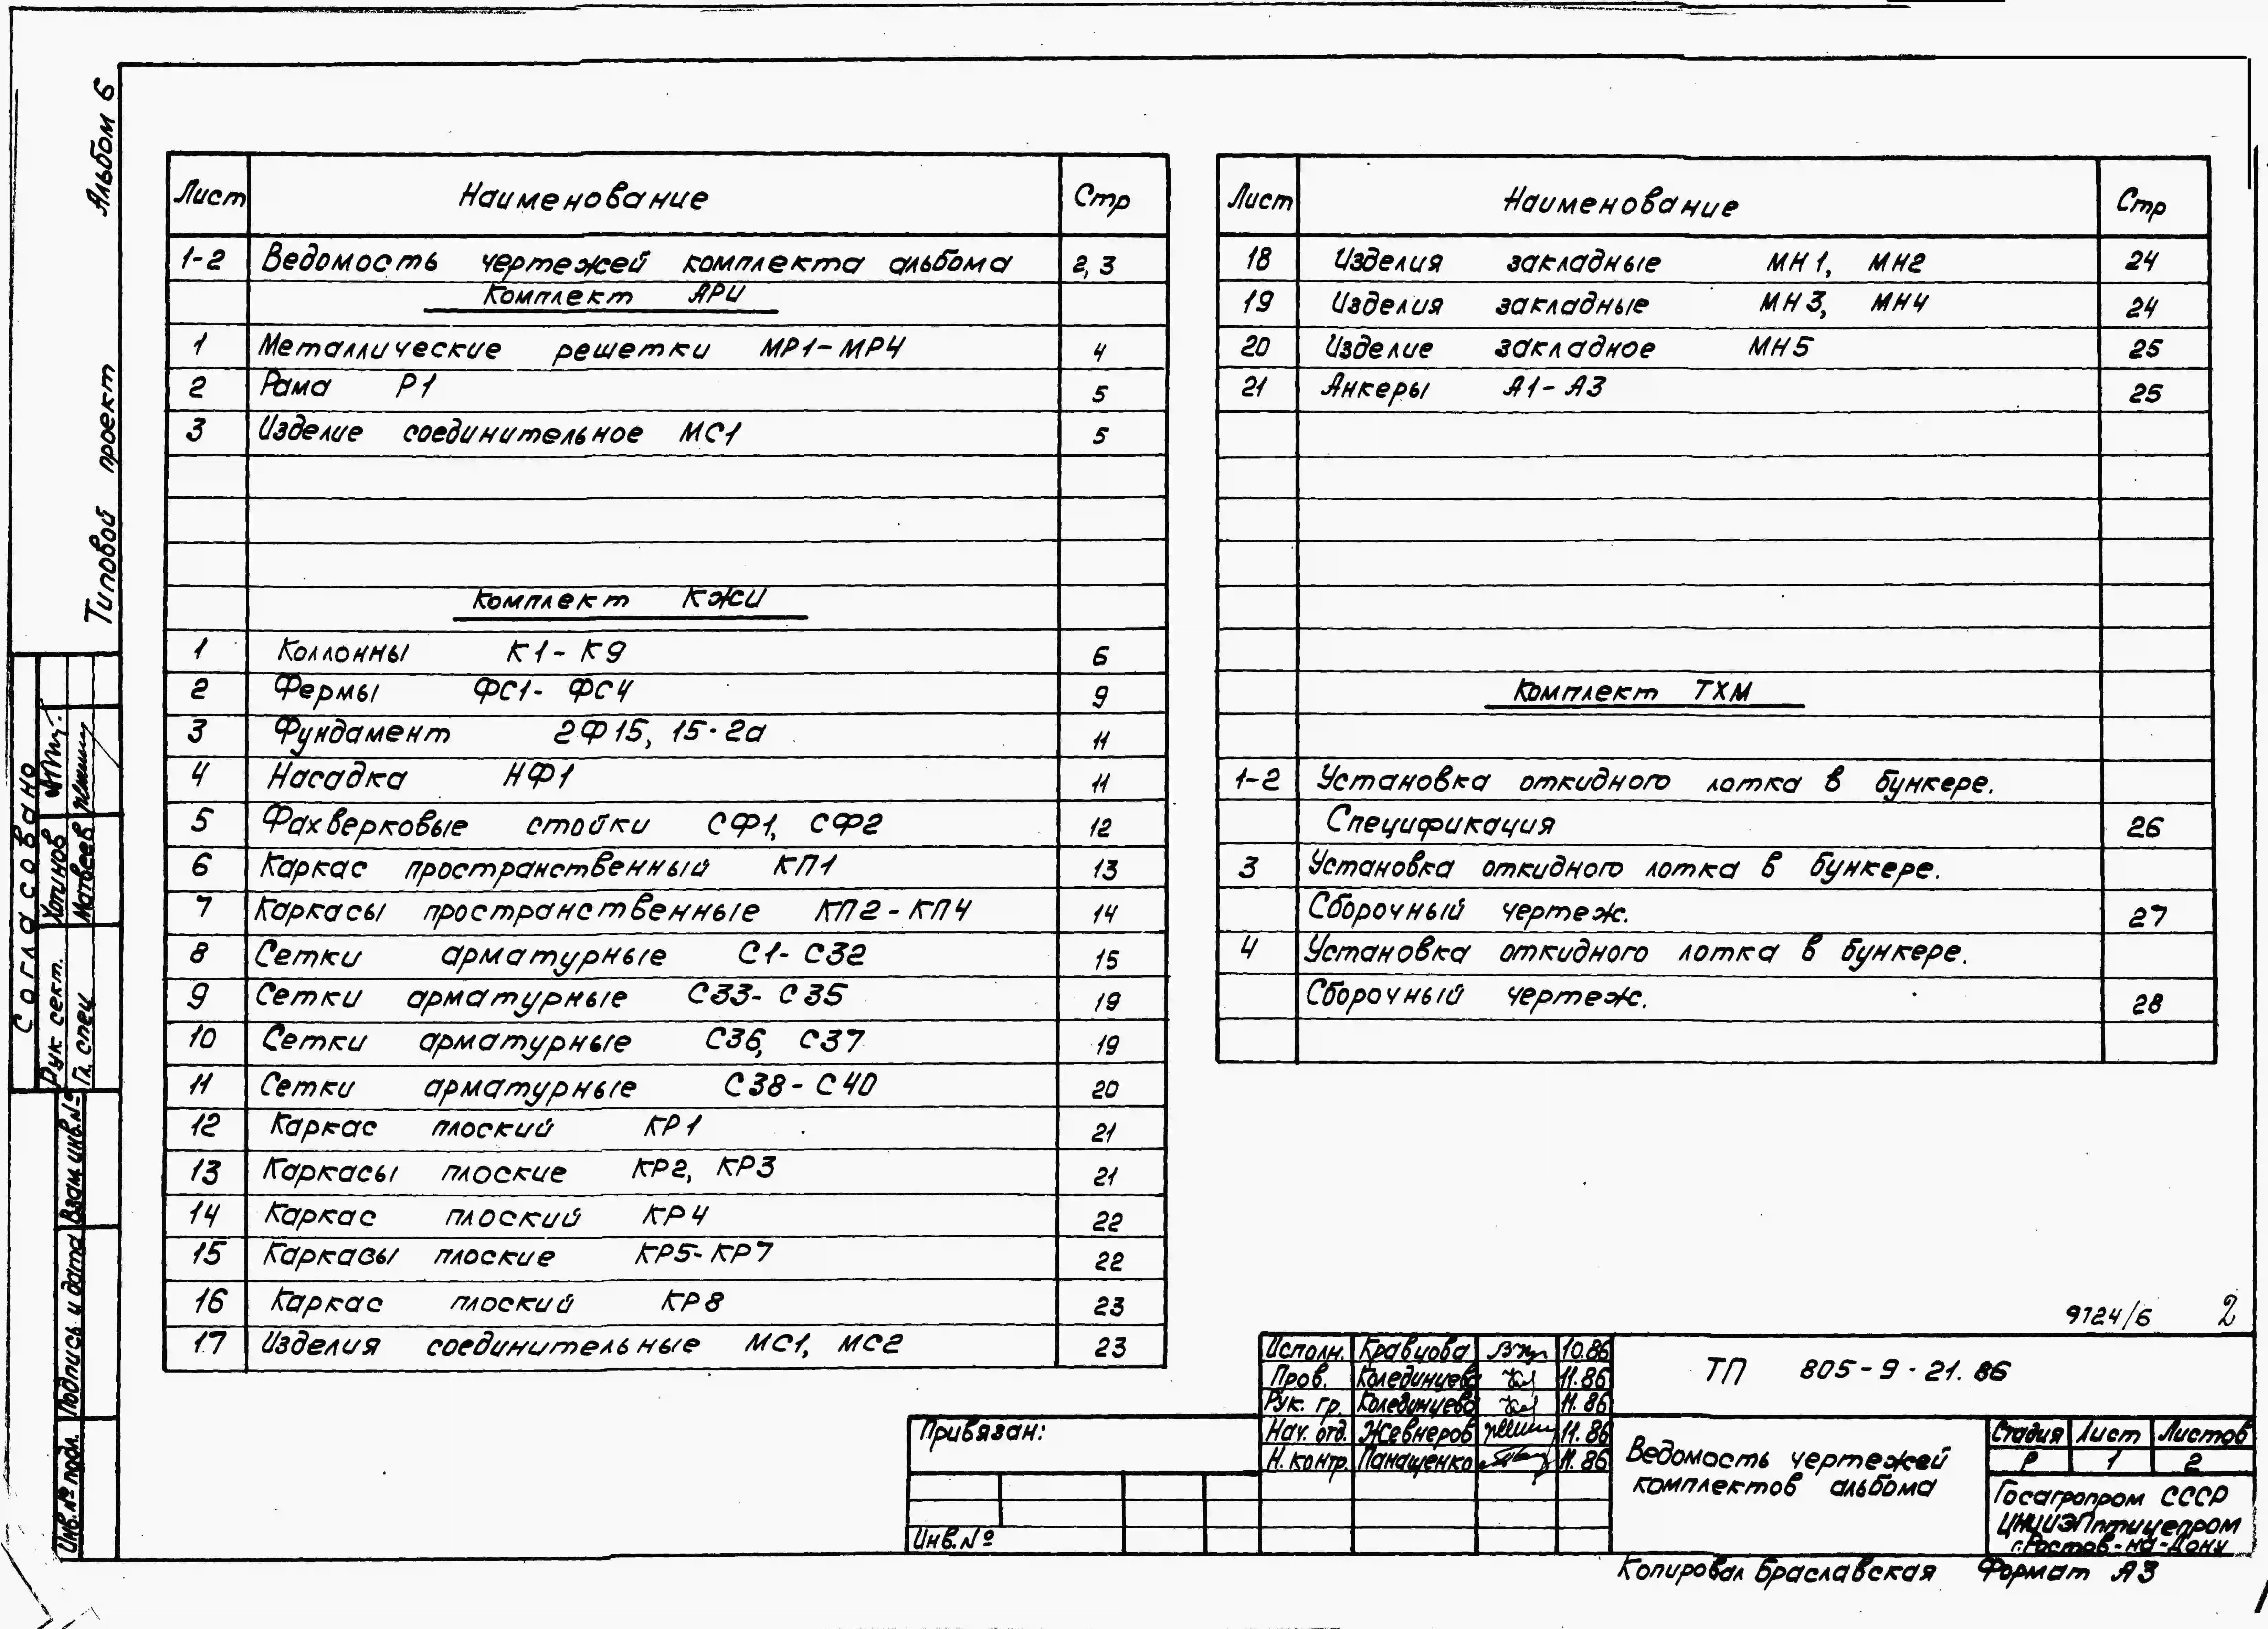 Альбом 6
Типовой проект
Лист Наименование Стр
1-2 Ведомость чертежей комплекта альбома 2, 3
Комплект АРИ
1 Металлические решетки МР1-МР4 4
2 Рама Р1 5
3 Изделие соединительное МС1 5
Комплект КЖИ
1 Коллонны К1-К9 6
2 Фермы ФС1-ФС4 9
3 Фундамент 2Ф15, 15-2а 11
4 Насадка НФ1 11
5 Фахверковые стойки СФ1, СФ2 12
6 Каркас пространственный КП1 13
7 Каркасы пространственные КП2-КП4 14
8 Сетки арматурные С1-С32 15
9 Сетки арматурные С33-С35 19
10 Сетки арматурные С36, С37 19
11 Сетки арматурные С38-С40 20
12 Каркас плоский КР1 21
13 Каркасы плоские КР2, КР3 21
14 Каркас плоский КР4 22
15 Каркасы плоские КР5-КР7 22
16 Каркас плоский КР8 23
17 Изделия соединительные МС1, МС2 23
Лист Наименование Стр
18 Изделия закладные МН1, МН2 24
19 Изделия закладные МН3, МН4 24
20 Изделие закладное МН5 25
21 Анкеры А1-А3 25
Комплект ТХМ
1-2 Установка откидного лотка в бункере.
Спецификация 26
3 Установка откидного лотка в бункере.
Сборочный чертеж. 27
4 Установка откидного лотка в бункере.
Сборочный чертеж. 28
Согласовано
Рук. сект. Хотинов
Гл. спец. Матвеев
Взам. инв.№
Подпись и дата
Инв.№ подл.
9724/6 2
Исполн. Кравцова 10.86
Пров. Колединцева 11.86
Рук. гр. Колединцева 11.86
Нач. отд. Жевнеров 11.86
Н. контр. Панащенко 11.86
ТП 805-9-21.86
Привязан:
Инв.№
Ведомость чертежей
комплектов альбома
Стадия Лист Листов
Р 1 2
Госагропром СССР
ЦНИИЭПптицепром
г.Ростов-на-Дону
Копировал Браславская Формат А3